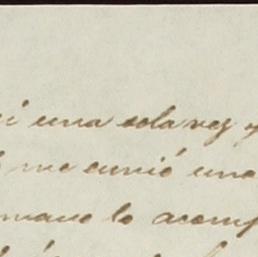 una sola vez y
me envió una
mano lo acomp